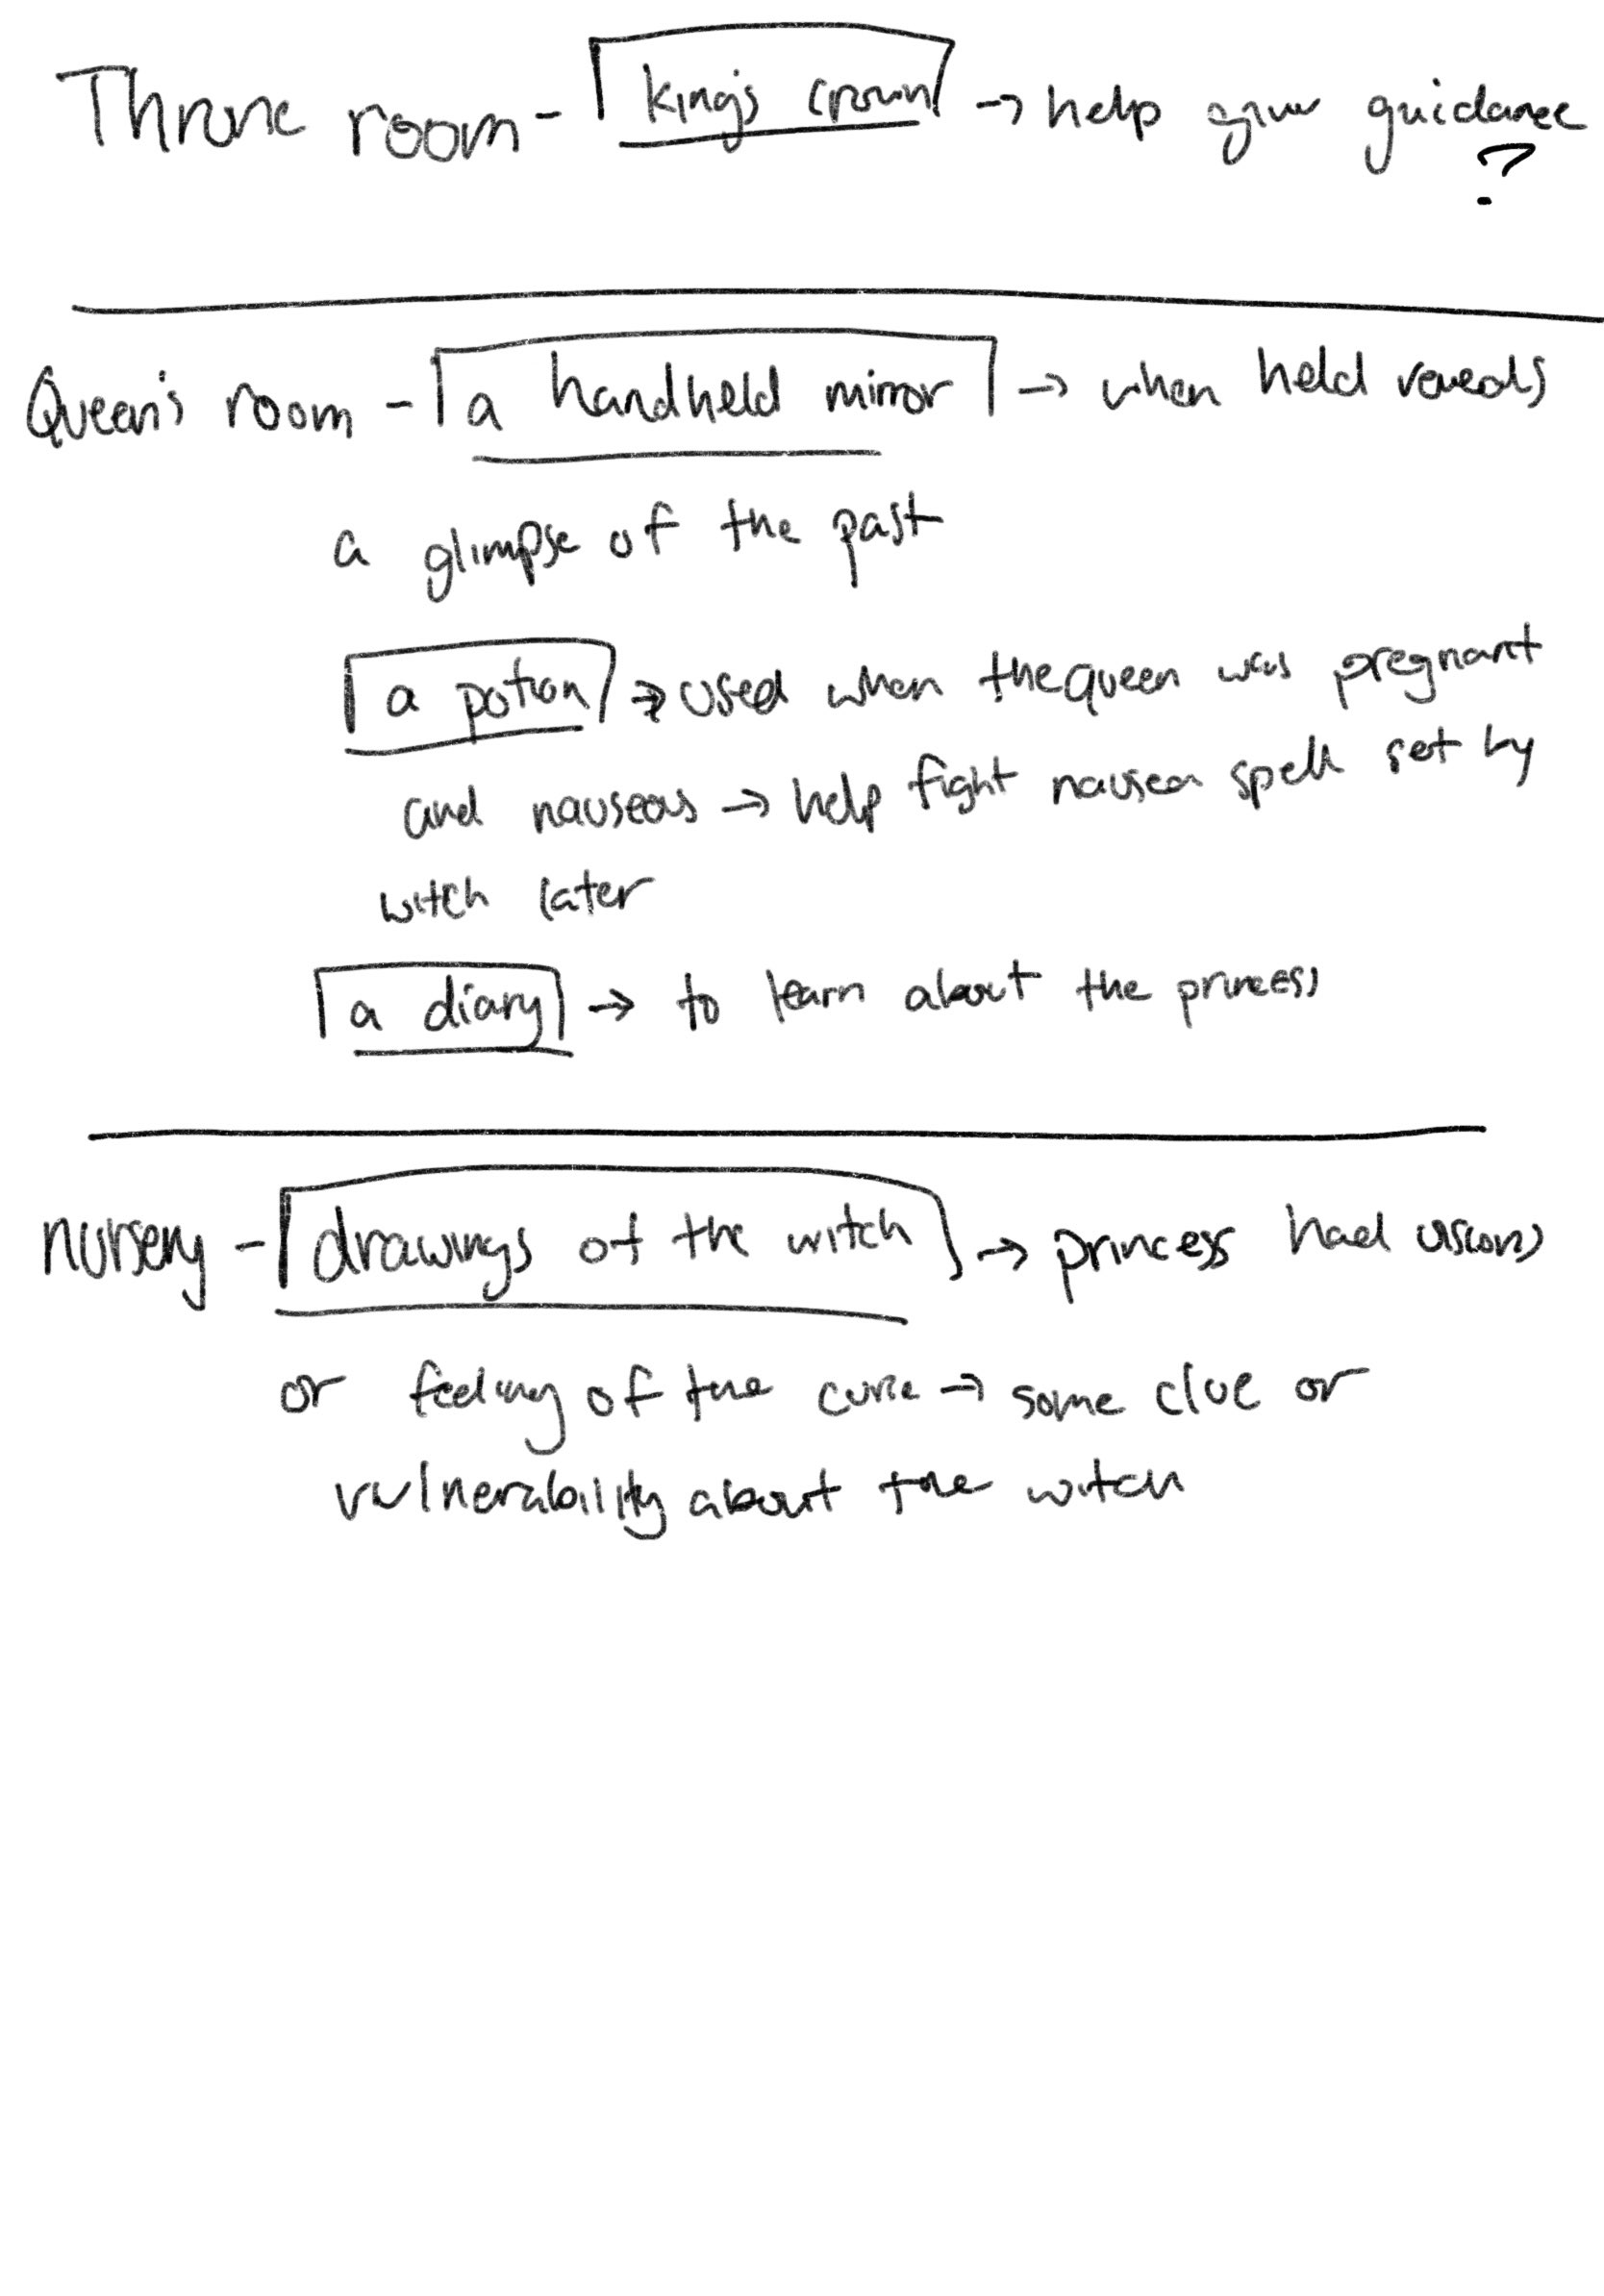 Throne room - king's crown → help give guidance
?
Queen's room - a handheld mirror → when held reveals
a glimpse of the past
a potion → used when the queen was pregnant
and nauseous → help fight nausea spell set by
witch later
a diary → to learn about the princess
nursery - drawings of the witch → princess had visions
or feeling of the curse → some clue or
vulnerability about the witch